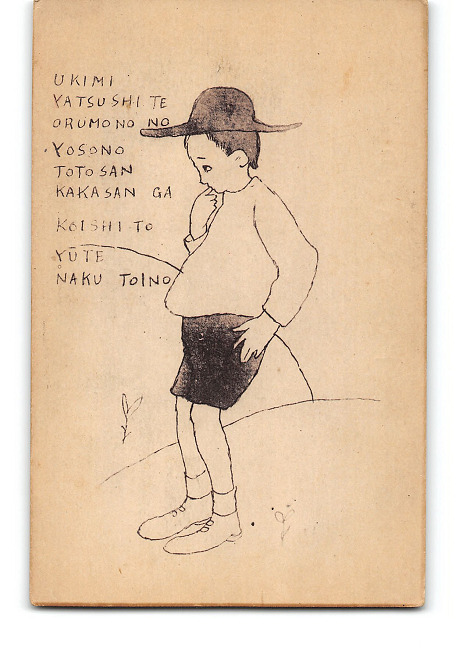 UKIMI
YATSUSHI TE
ORUMONO NO
YOSONO
TOTOSAN
KAKASAN GA
KOISHI TO
YŪTE
NAKU TOINO